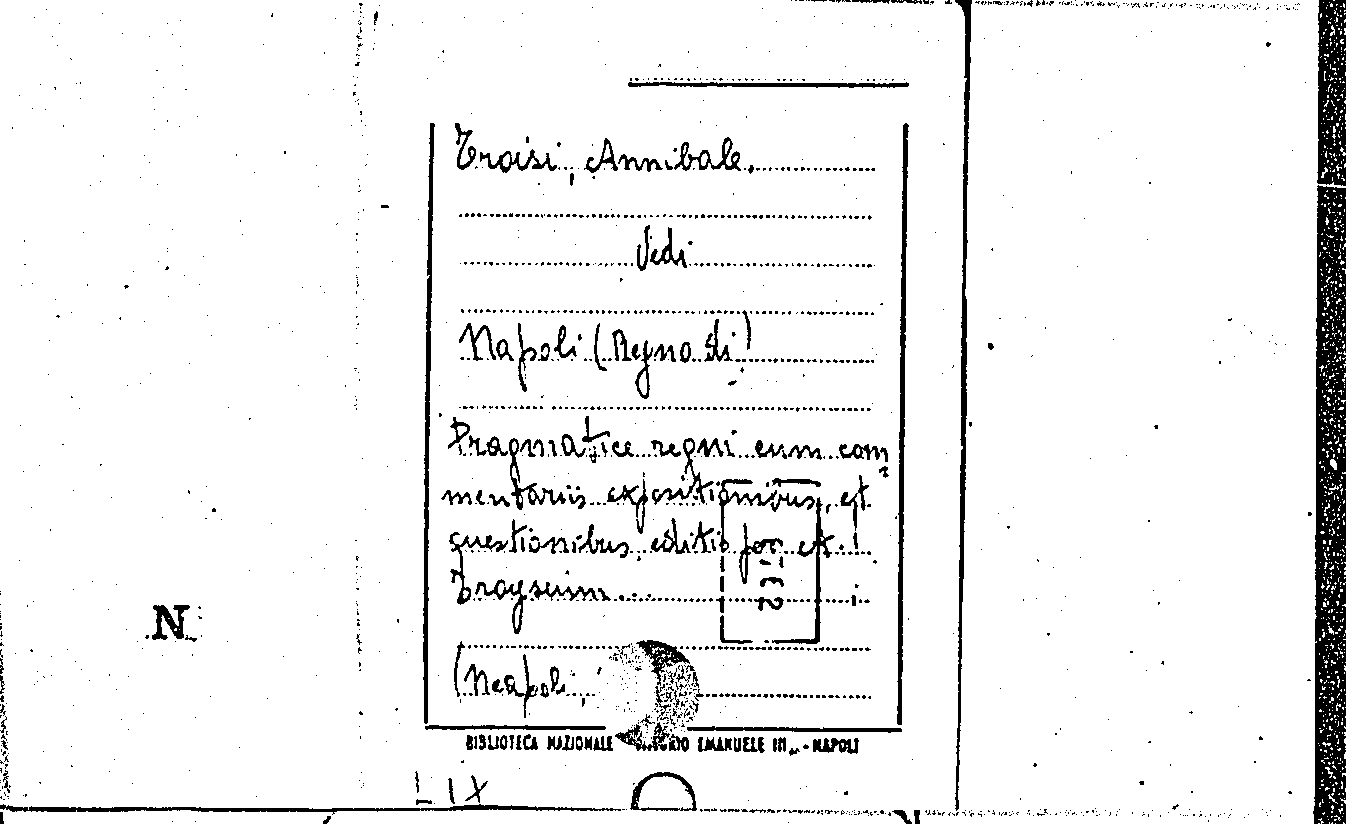 Troisi, Annibale.
Vedi
Napoli (Regno di)
Pragmatice regni cum com
mentariis expositionibus, et
questionibus editis for et.
Troyseum...
(Neapoli,
N
BIBLIOTECA NAZIONALE EMANUELE III - NAPOLI